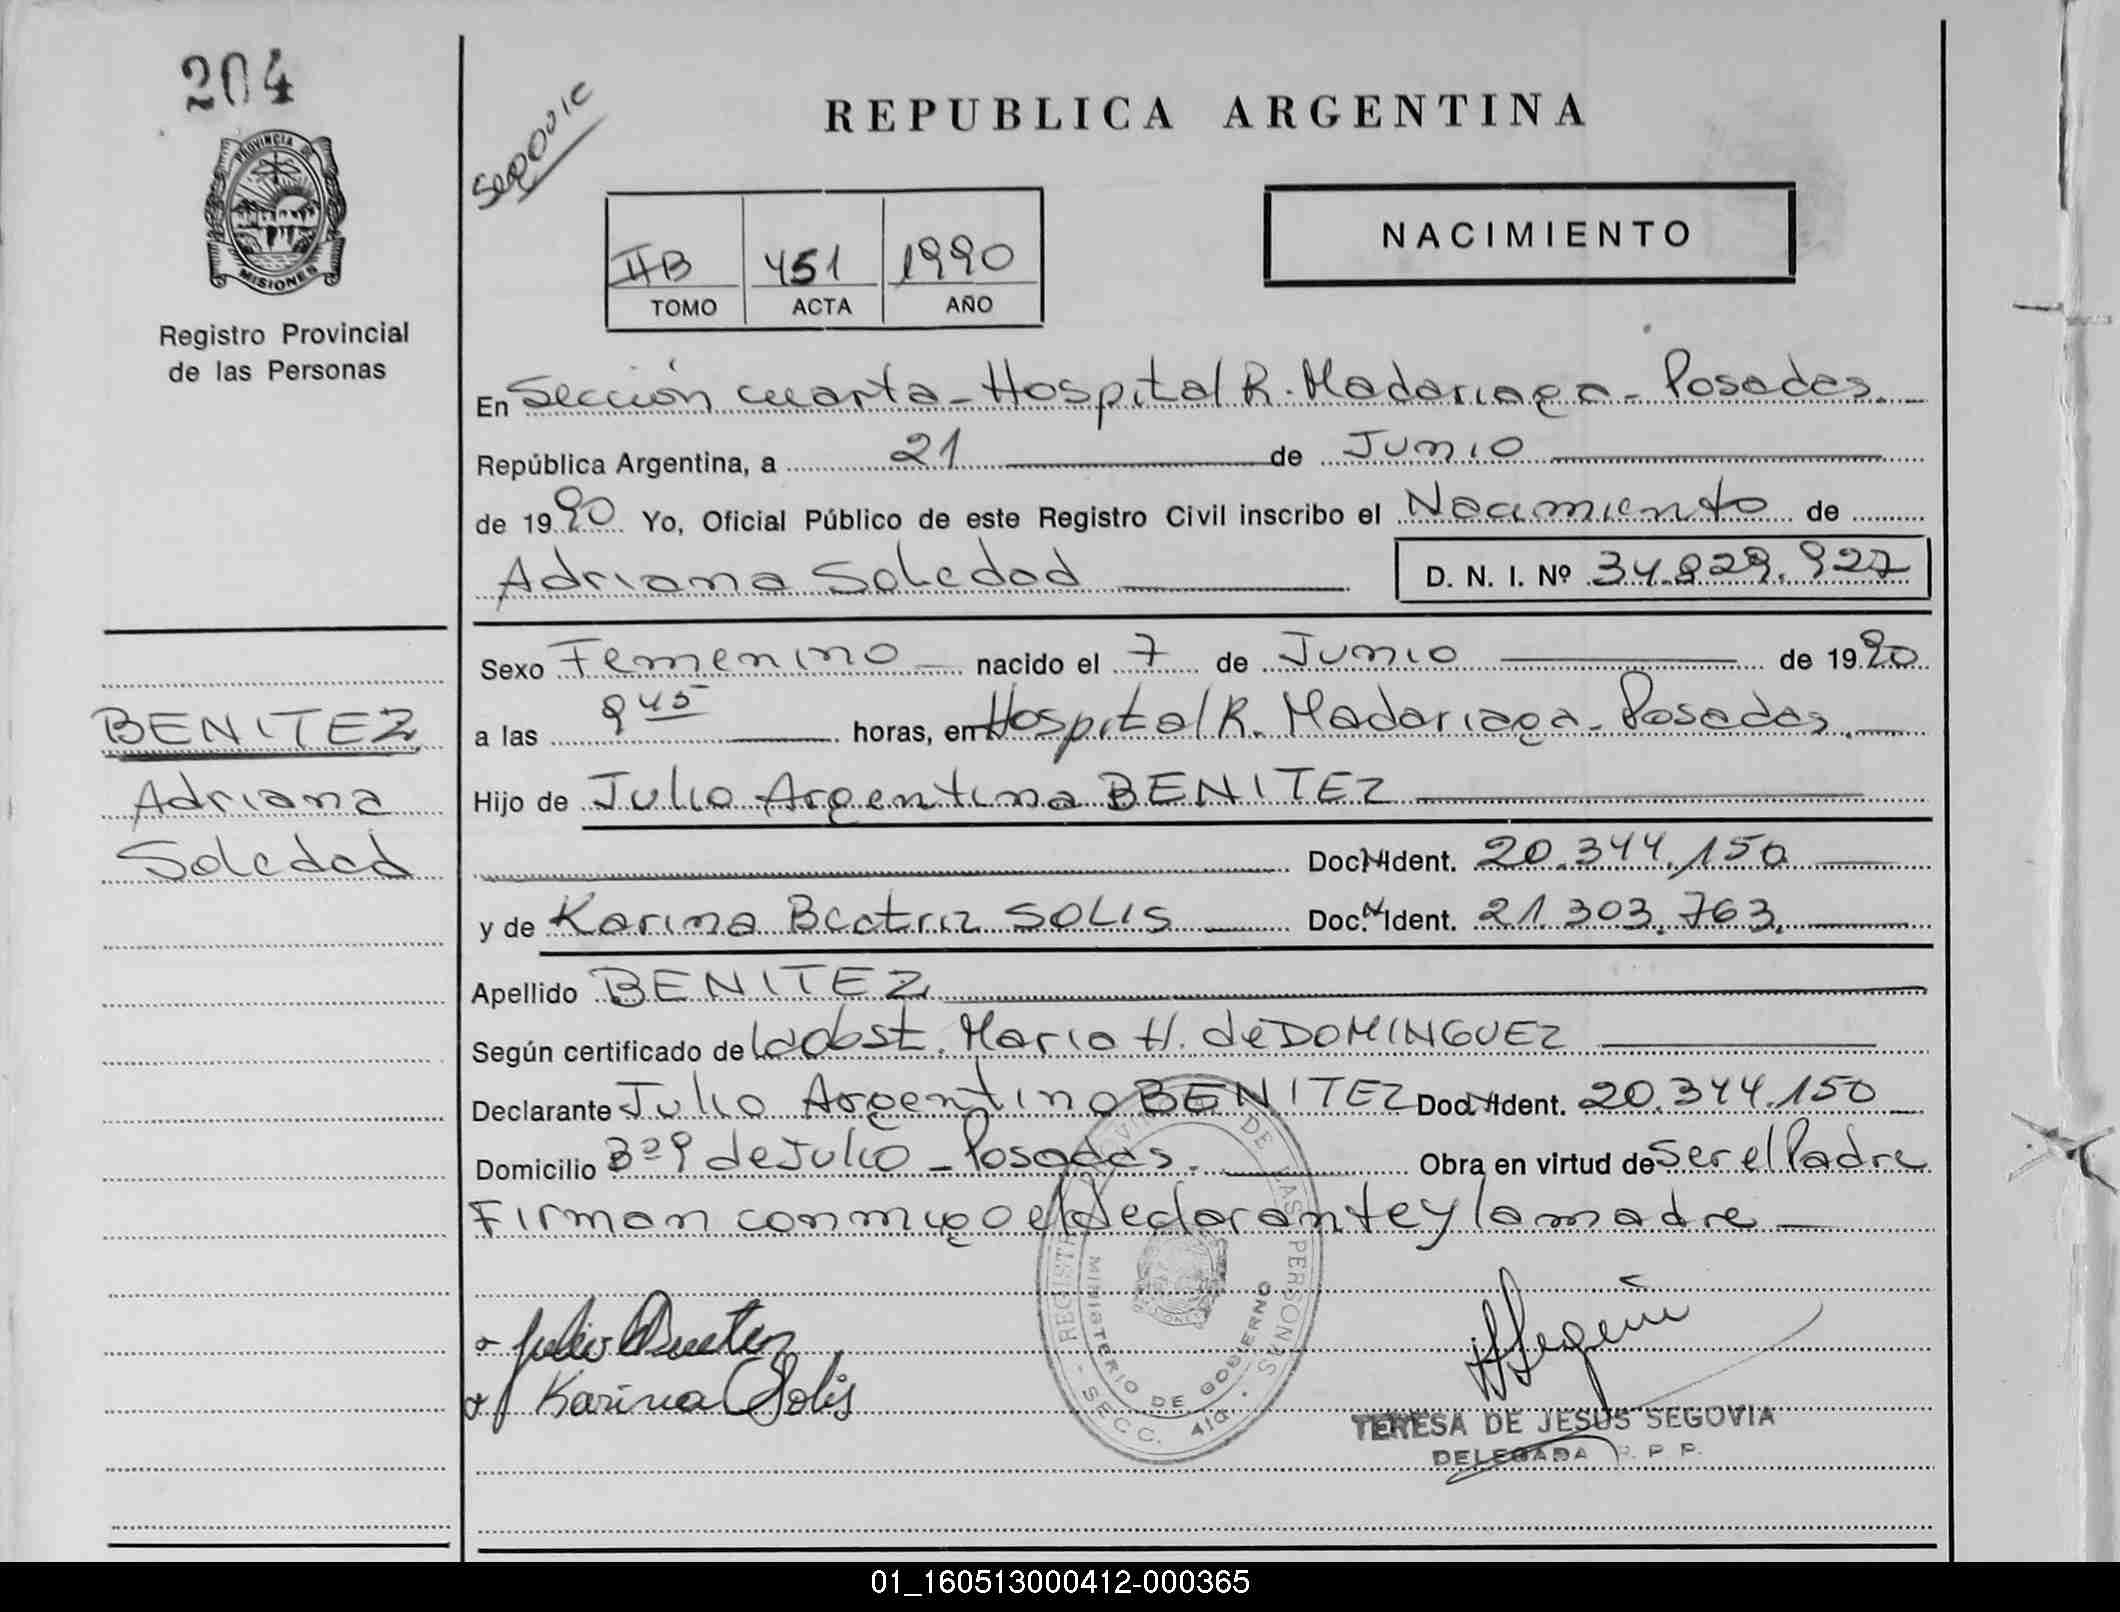 204
PROVINCIA DE
MISIONES
Registro Provincial
de las Personas
REPUBLICA ARGENTINA
NACIMIENTO
IIB 451 1990
TOMO ACTA AÑO
En Sección cuarta - Hospital R. Madariaga - Posadas.
República Argentina, a 21 de Junio
de 1990 Yo, Oficial Público de este Registro Civil inscribo el Nacimiento de
Adriana Soledad D. N. I. Nº 34.829.927
Sexo Femenino nacido el 7 de Junio de 1990
a las 9 45 horas, en Hospital R. Madariaga - Posadas.
Hijo de Julio Argentino BENITEZ
Doc. N. Ident. 20.344.150
y de Karina Beatriz SOLIS Doc. N. Ident. 21.303.763.
Apellido BENITEZ
Según certificado de la obst. Maria H. de DOMINGUEZ
Declarante Julio Argentino BENITEZ Doc. N. Ident. 20.344.150
Domicilio B° 9 de Julio - Posadas. Obra en virtud de ser el Padre
Firman conmigo el declarante y la madre
BENITEZ
Adriana
Soledad
Karina Solis
REGISTRO PROVINCIAL DE LAS PERSONAS
MINISTERIO DE GOBIERNO
- SECC. 4ta. -
TERESA DE JESUS SEGOVIA
DELEGADA R. P. P.
01_160513000412-000365